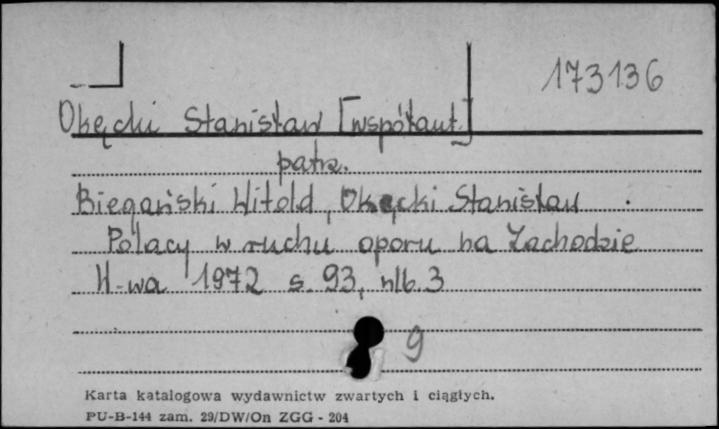 173136
Okęcki Stanisław [współaut.]
patrz.
Biegański Witold, Okęcki Stanisław
Polacy w ruchu oporu na Zachodzie
W-wa 1972 s. 93, nlb. 3
9
Karta katalogowa wydawnictw zwartych i ciągłych.
PU-B-144 zam. 29/DW/On ZGG - 204